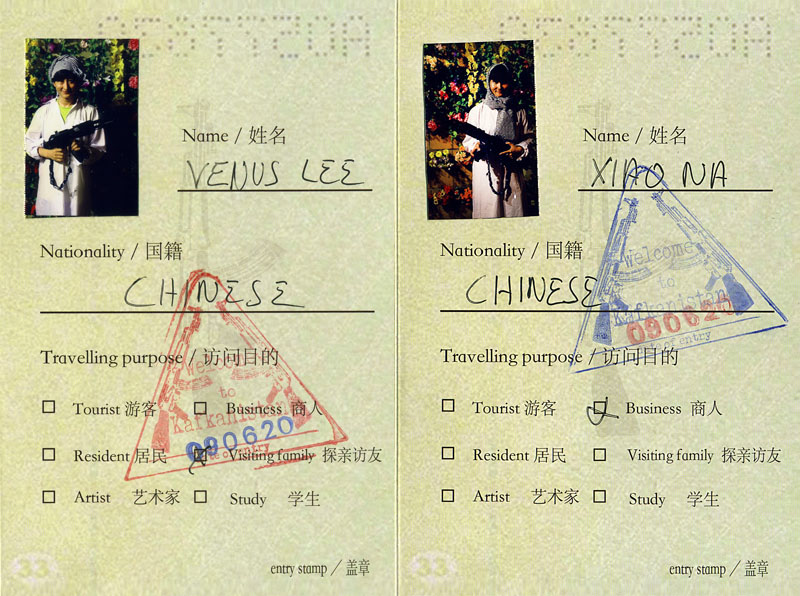 Name / 姓名
VENUS LEE
Nationality / 国籍
CHINESE
Travelling purpose / 访问目的
Welcome
to
Kafkanistan
090620
date of entry
Tourist 游客
Business 商人
Resident 居民
Visiting family 探亲访友
Artist 艺术家
Study 学生
33
entry stamp / 盖章
Name / 姓名
XIAO NA
Nationality / 国籍
CHINESE
Welcome
to
Kafkanistan
090620
date of entry
Travelling purpose / 访问目的
Tourist 游客
Business 商人
Resident 居民
Visiting family 探亲访友
Artist 艺术家
Study 学生
33
entry stamp / 盖章